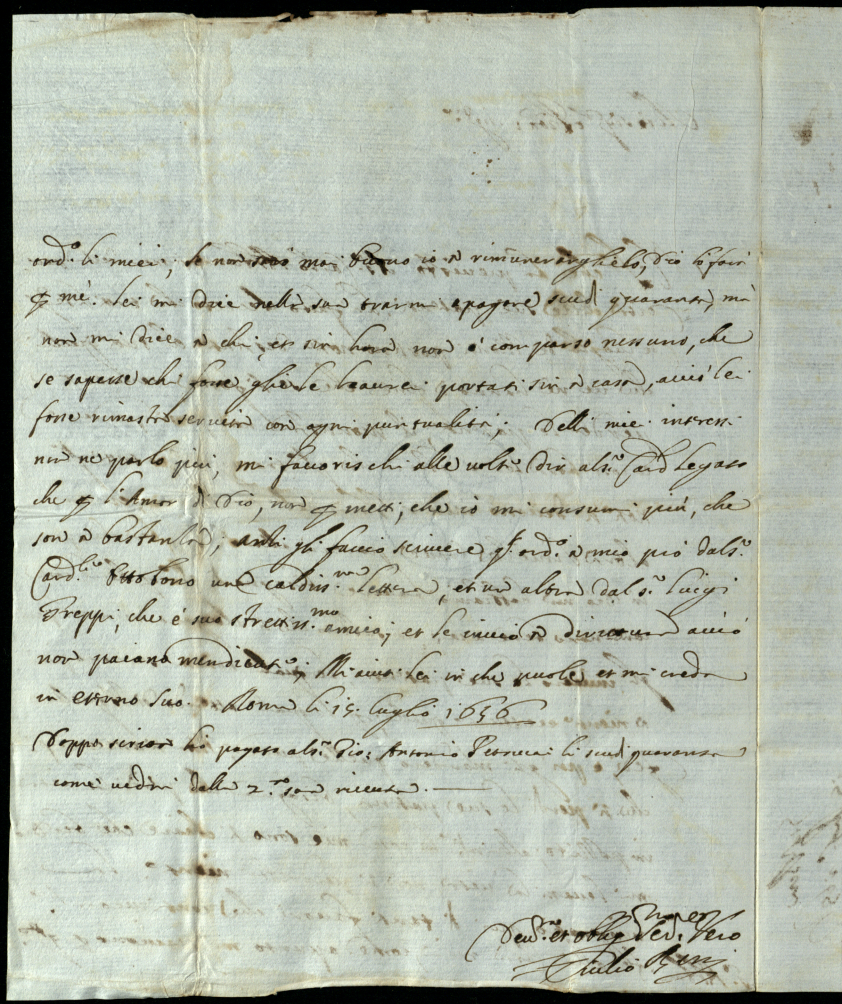 ord.e li miei; se non sarò mai buono io à rimunerarglielo, Dio lo farà
p mè. Lei mi dice nella sua trarmi apagare scudi quaranta, mà
non mi dice a chi, et sin hora non è comparso nessuno, che
se sapesse chi fosse ghe le haurei portati sin à casa, acciò lei
fosse rimasta servita con ogni puntualità; Delli miei interessi
non ne parlo più, mi favorischi alle volte dir al s.r Card Legato
che p l'Amor di Dio, non pmetti, che io mi consumi più, che
son à bastanza; anti gli faccio scrivere ord.e a mio pió dal s.r
Card.le Ottobono una caldiss.ma lettera, et un altra dal s.r Luigi
Greppi, che è suo strettiss.mo amico; et le invio à acciò
non paiano mendicate; Mi aiuti lei in che puole et mi creda
in eterno suo. Roma li 15 luglio 1656
Doppo scritta hò pagato al s.r Gio: Antonio Petrucci li scudi quaranta
come vedrà dalla 2.a sua ricevuta.
Dev.mo et oblig.mo Ser.re Vero
Giulio